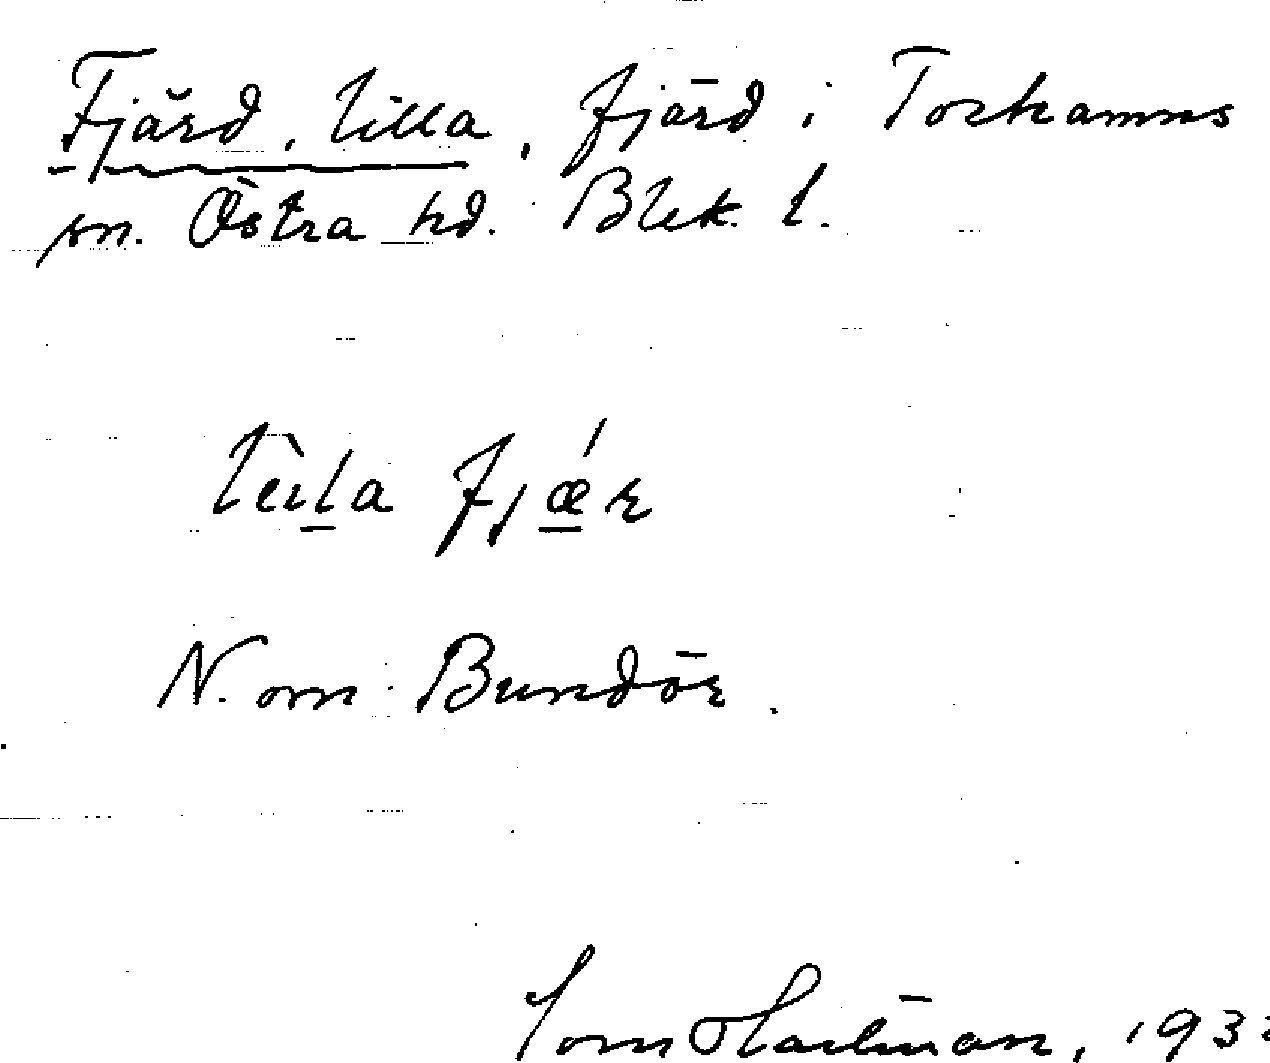 Fjärd, Lilla, fjärd i Torhamns
sn. Östra hd. Blek. l.
N. om Bundör.
Tom Hartman, 193